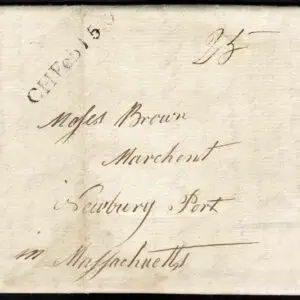 CHFeb 15
25
Moses Brown
Marchent
Newbury Port
in Massachuetts